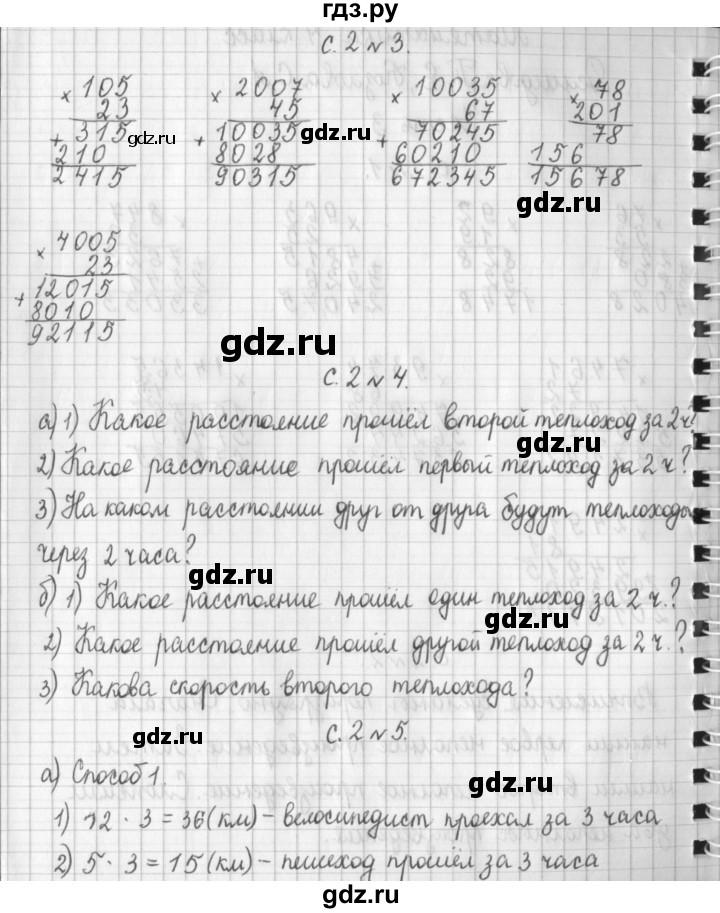 гдз.ру
с. 2 № 3.
× 105 × 2007 × 10035 × 78
23 45 67 201
+ 315 + 10035 + 70245 78
210 8028 60210 156
2415 90315 672345 15678
gdz.ru gdz.ru gdz.ru
gdz.ru
× 4005
23
+ 12015
8010
92115
gdz.ru
с. 2 № 4.
а) 1) Какое расстояние прошёл второй теплоход за 2 ч?
gdz.ru
2) Какое расстояние прошёл первый теплоход за 2 ч?
3) На каком расстоянии друг от друга будут теплоходы
через 2 часа?
gdz.ru
б) 1) Какое расстояние прошёл один теплоход за 2 ч.?
gdz.ru
2) Какое расстояние прошёл другой теплоход за 2 ч.?
3) Какова скорость второго теплохода?
с. 2 № 5.
gdz.ru
а) Способ 1.
gdz.ru
1) 12 · 3 = 36 (км) – велосипедист проехал за 3 часа
2) 5 · 3 = 15 (км) – пешеход прошёл за 3 часа
gdz.ru